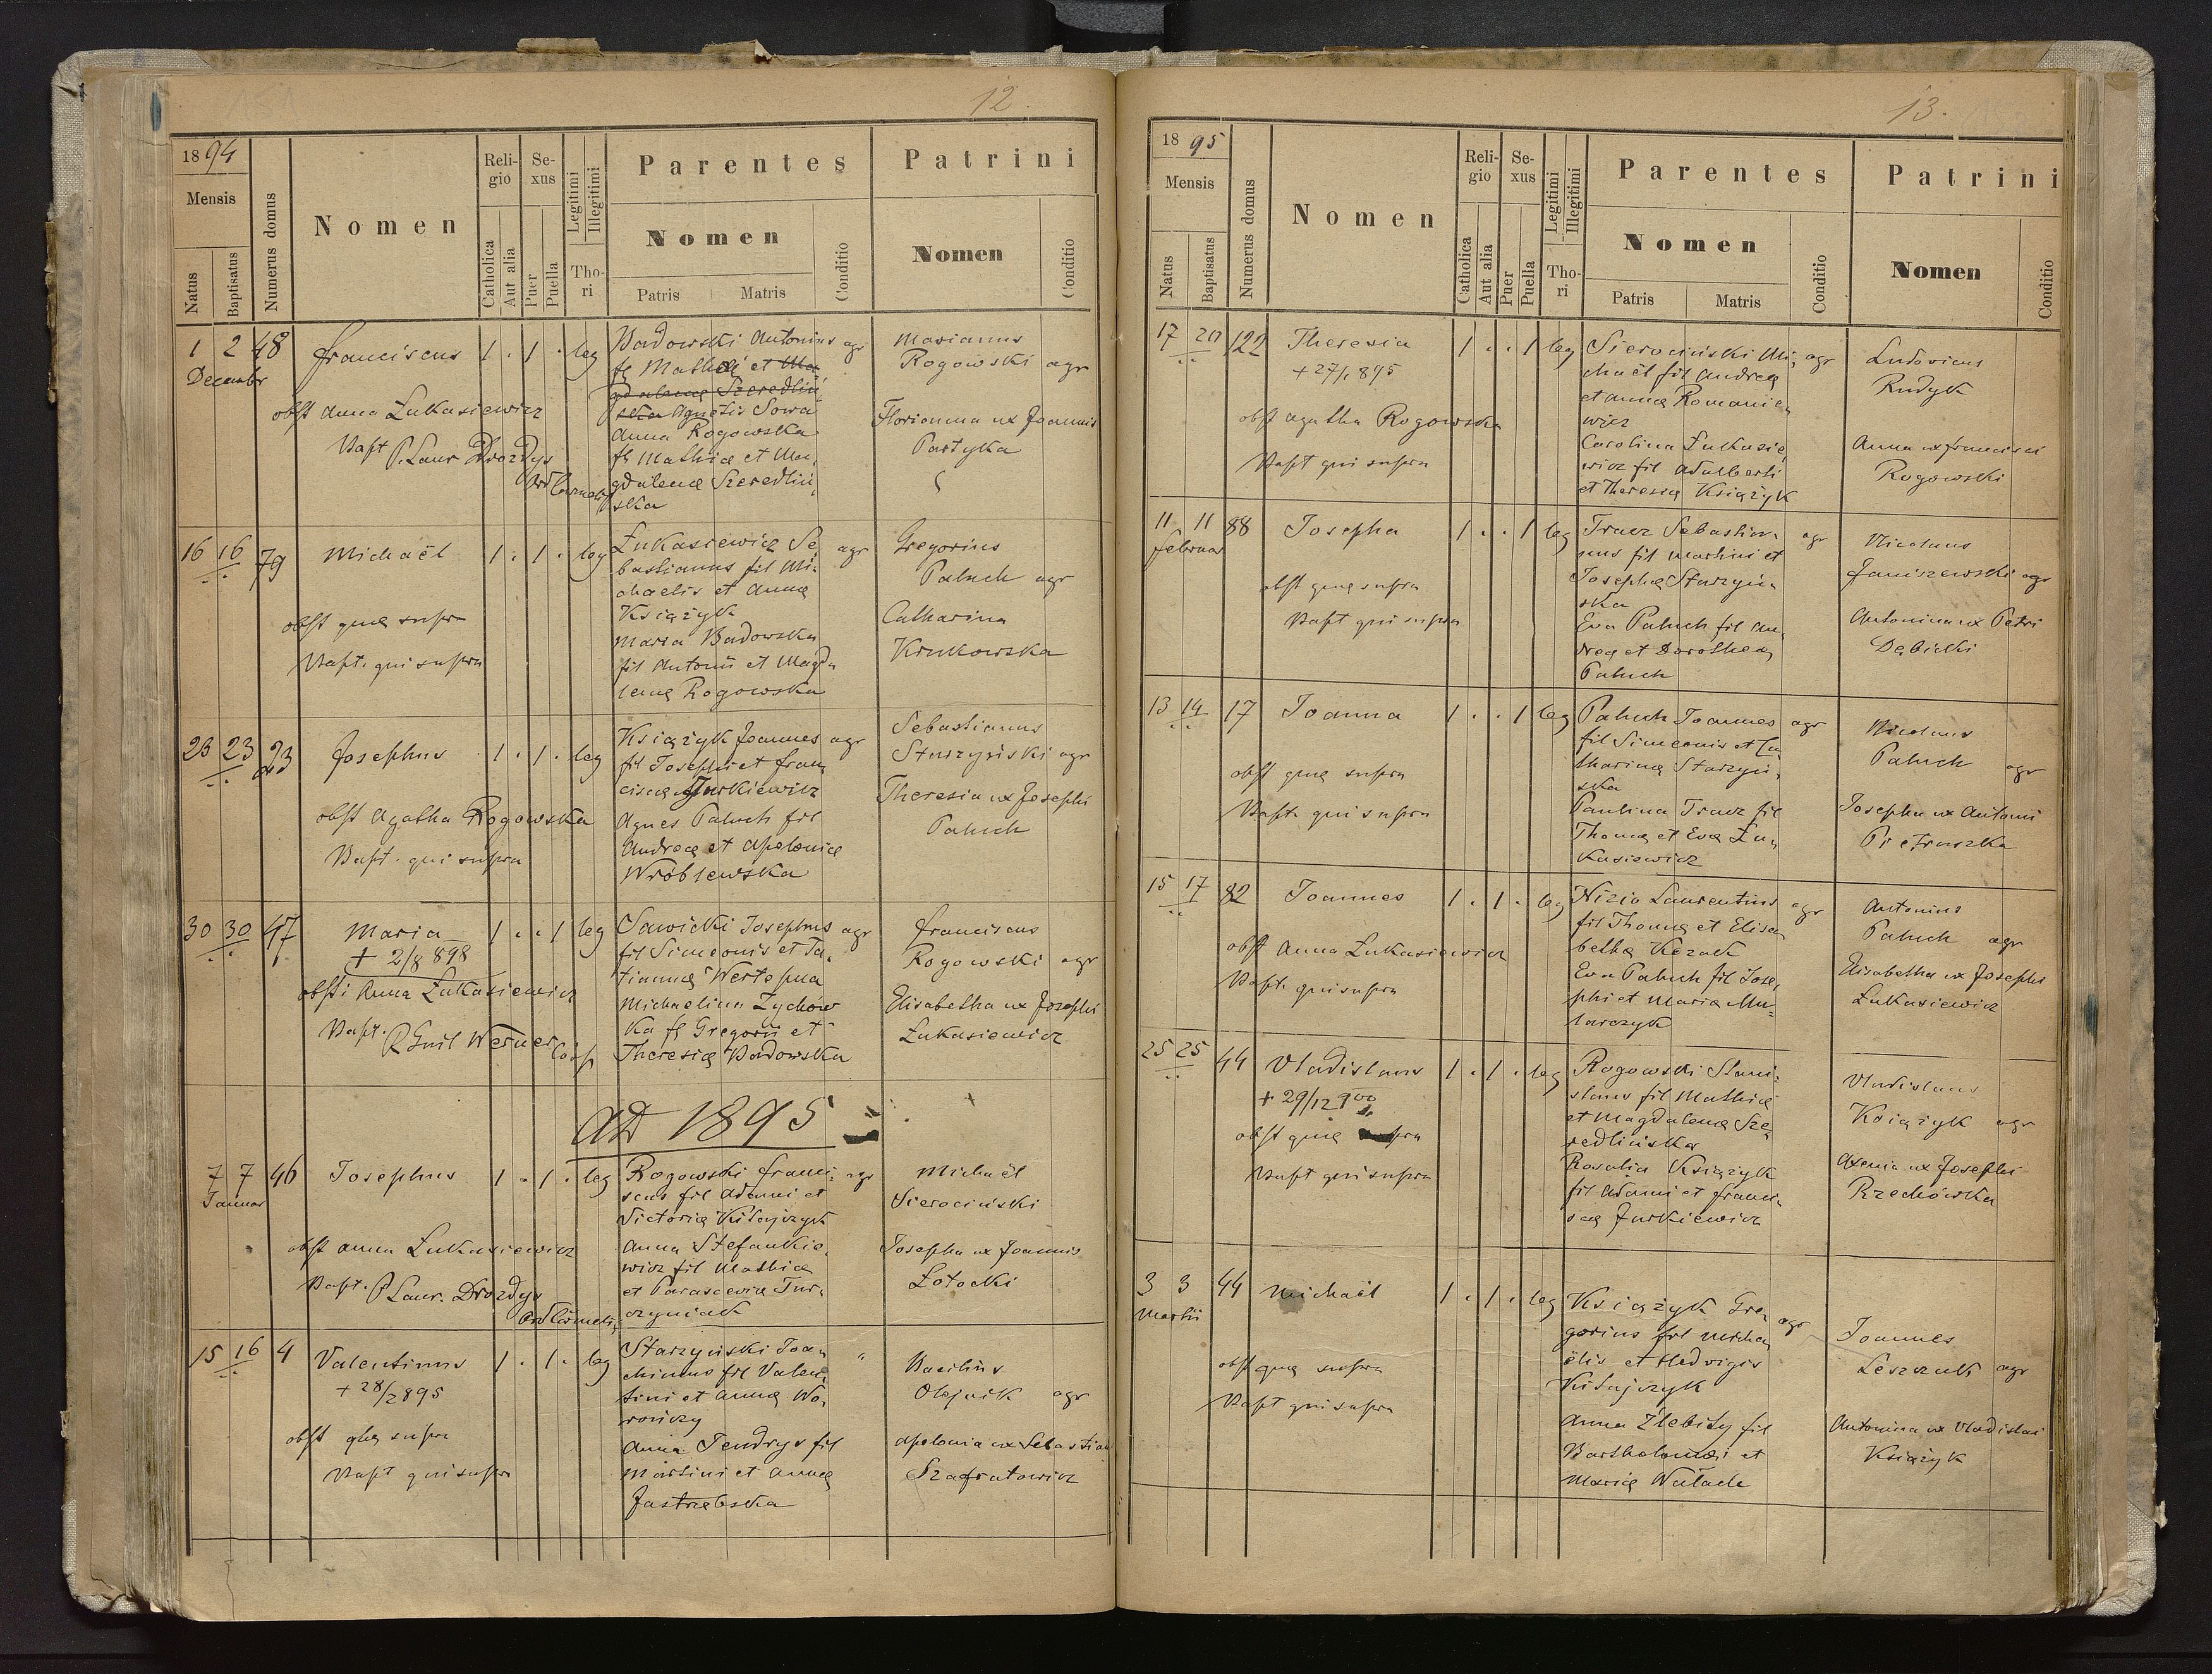 12.
1894
Mensis
Natus
Baptisatus
Numerus domus
Nomen
Religio
Catholica
Aut alia
Sexus
Puer
Puella
Legitimi
Illegitimi
Thori
Parentes
Nomen
Patris
Matris
Conditio
Patrini
Nomen
Conditio
1 2 48 Franciscus 1 . 1 . leg
Decembr
obst Anna Łukasiewicz
Bapt P. Laur Drozdys
Badowski Antonius agr
fil Mathei et Ma
gdalenę Szeredliń
ska Agnetis Sowa
Anna Rogowska
fil Mathię et Ma
gdalenę Szeredliń
ska
Marianus
Rogowski agr
Florianna ux Joannis
Partyka
16 16 79 Michaël 1 . 1 . leg
obst quę supra
Bapt. qui supra
Łukasiewicz Se agr
bastianus fil Mi
chaelis et Annę
Książyk
Maria Badowska
fil Antonii et Magda
lenę Rogowska
Gregorius
Paluch agr
Catharina
Krukowska
23 23 23 Josephus 1 . 1 . leg
obst Agatha Rogowska
Bapt. qui supra
Książyk Joannes agr
fil Josephi et Fran
ciscę Jurkiewicz
Agnes Paluch fil
Andreę et Apolonię
Wróblewska
Sebastianus
Starzyński agr
Theresia ux Josephi
Paluch
30 30 47 Maria 1 . . 1 leg
+ 2/8 898
obst: Anna Łukasiewicz
Bapt. P. Emil Werner Coop
Sawicki Josephus agr
fil Simeonis et Ta
tiannę Wertepna
Michaelina Zychów
ka fil Gregorii et
Theresię Badowska
Franciscus
Rogowski agr
Elisabetha ux Josephi
Łukasiewicz
AD 1895
7 7 46 Josephus 1 . 1 . leg
Januar
obst Anna Łukasiewicz
Bapt. P. Laur. Drozdys
Rogowski Franci agr
scus fil Adami et
Victorię Kitajczyk
Anna Stefankie
wicz fil Mathię
et Parascevię Tur
czyniak
Michaël
Sierociński
Josepha ux Joannis
Łotocki
15 16 4 Valentinus 1 . 1 . leg
+ 28/2 895
obst quę supra
Bapt qui supra
Starzyński Joa "
chimus fil Valen
tini et Annę Wo
rończy
Anna Tendrys fil
Martini et Annę
Jastrzębska
Basilius
Olejnik agr
Apolonia ux Sebastian
Szafratowicz
13.
1895
Mensis
Natus
Baptisatus
Numerus domus
Nomen
Religio
Catholica
Aut alia
Sexus
Puer
Puella
Legitimi
Illegitimi
Thori
Parentes
Nomen
Patris
Matris
Conditio
Patrini
Nomen
Conditio
17 20 122 Theresia 1 . . 1 leg
+ 27/1 895
obst Agatha Rogowska
Bapt qui supra
Sierociński Mi agr
chaël fil Andreę
et Annę Romanie
wicz
Carolina Łukasie
wicz fil Adalberti
et Theresię Książyk
Ludovicus
Rudyk
Anna ux Francisci
Rogowski
11 11 88 Josepha 1 . . 1 leg
Februar
obst quę supra
Bapt qui supra
Tracz Sebastia agr
nus fil Martini et
Josephę Starzyń
ska
Eva Paluch fil An
dreę et Dorotheę
Paluch
Nicolaus
Janiszewski agr
Antonina ux Petri
Dębicki
13 14 17 Joanna 1 . . 1 leg
obst quę supra
Bapt. qui supra
Paluch Joannes agr
fil Simeonis et Ca
tharinę Starzyń
ska
Paulina Tracz fil
Thomę et Evę Łu
kasiewicz
Nicolaus
Paluch agr
Josepha ux Antoni
Pietruszka
15 17 82 Joannes 1 . 1 . leg
obst Anna Łukasiewicz
Bapt. qui supra
Nizio Laurentius agr
fil Thomę et Elisa
bethę Kozak
Eva Paluch fil Jose
phi et Marię Mu
larczyk
Antonius
Paluch agr
Elisabetha ux Josephi
Łukasiewicz
25 25 44 Vladislaus 1 . 1 . leg
+ 29/12 900
obst quę supra
Bapt qui supra
Rogowski Stani
slaus fil Mathię
et Magdalenę Sze
redlińska
Rosalia Książyk
fil Adami et Franci
scę Jurkiewicz
Vladislaus
Książyk agr
Axenia ux Josephi
Rzechówka
3 3 44 Michaël 1 . 1 . leg
Martii
obst quę supra
Bapt qui supra
Książyk Gre agr
gorius fil Micha
ëlis et Hedvigis
Kitajczyk
Anna Źlebity fil
Bartholomei et
Marię Watach
Joannes
Leszczuk agr
Antonina ux Vladislai
Książyk